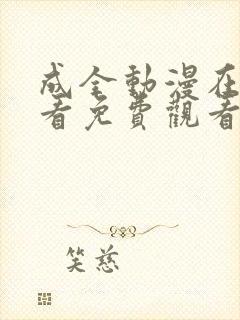 成全動漫在
看免費觀看
笑慈